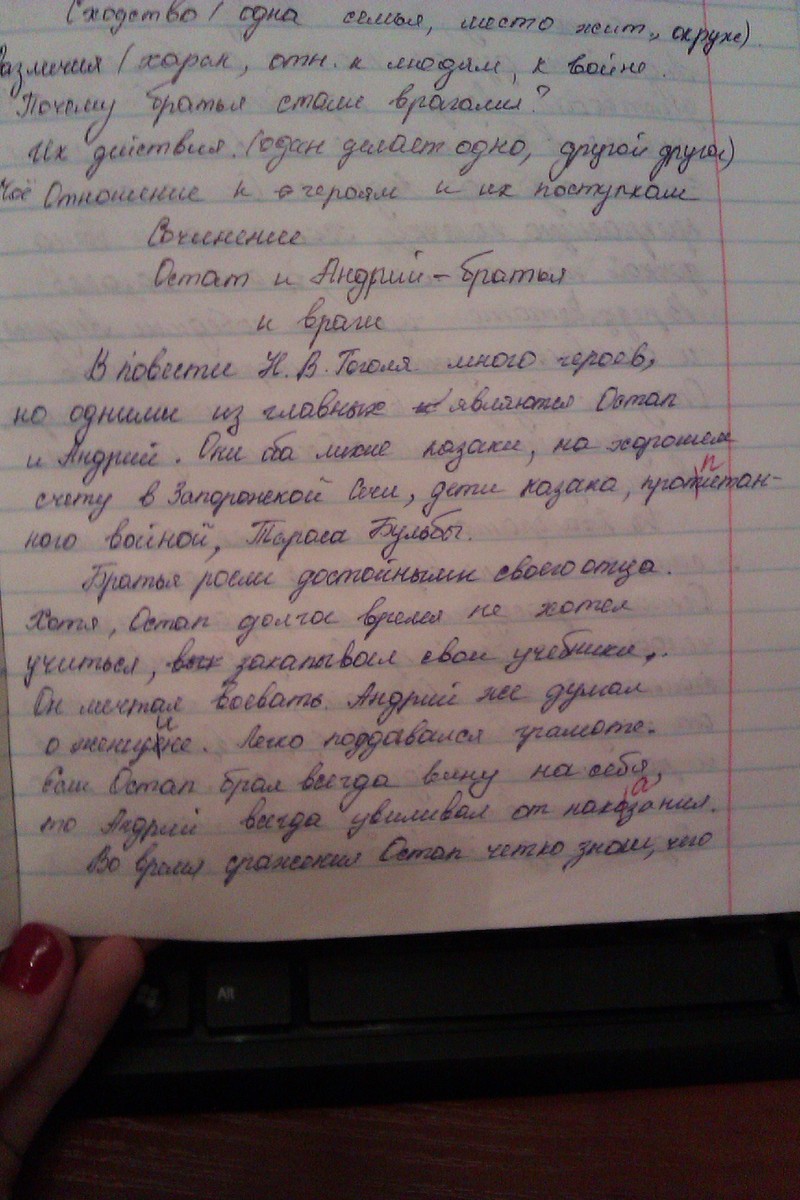 Сходство / одна семья, место жит., окруж).
Различия / харак, отн. к людям, к войне.
Почему братья стали врагами?
Их действия. (один делает одно, другой другое)
Моё Отношение к героям и их поступкам
Сочинение
Остап и Андрий - братья
и враги
В повести Н. В. Гоголя много героев,
но одними из главных являются Остап
и Андрий. Они оба лихие казаки, на хорошем
счету в Запорожской Сечи, дети казака, пропитан-
ного войной, Тараса Бульбы.
Братья росли достойными своего отца.
Хотя, Остап долгое время не хотел
учиться, закапывал свои учебники.
Он мечтал воевать. Андрий же думал
о женщине. Легко поддавался грамоте.
Если Остап брал всегда вину на себя,
то Андрий всегда увиливал от наказания.
Во время сражения Остап четко знал, чего
Alt